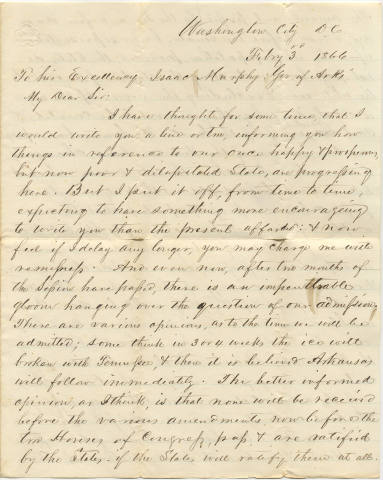 Washington City D C
Febry 3rd 1866
To his Excellency Isaac Murphy Gov of Arks
My Dear Sir:
I have thought for some time, that I
would write you a line or two, informing you how
things in reference to our once happy & prosperous,
but now poor & dilapitated State, are progressing
here. But I put it off, from time to time,
expecting to have something more encouraging
to write you than the present affords: & now
feel if I delay any longer, you may charge me with
remissness. And even now, after two months of
the Session have passed, there is an impenetrable
gloom hanging over the question of our admission.
There are various opinions, as to the time we will be
admitted; some think in 3 or 4 weeks the ice will
broken with Tennessee, & then it is believd Arkansas
will follow immediately. The better informed
opinion, as I think, is that none will be received
before the various amendments, now before the
two Houses of Congress, pass, & are ratified
by the States - if the States will ratify them at all.